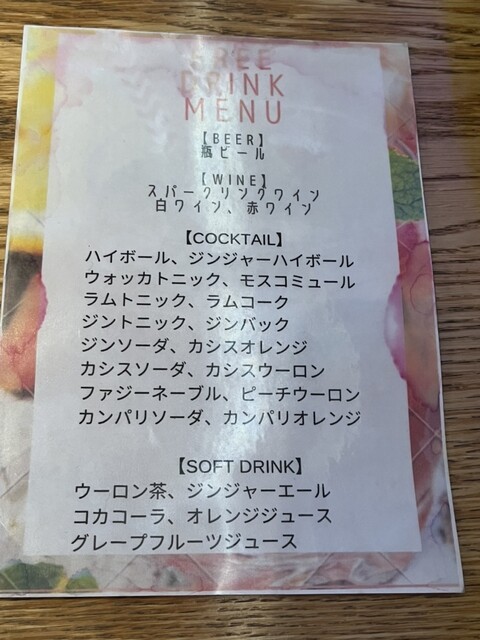 FREE
DRINK
MENU
【BEER】
瓶ビール
【WINE】
スパークリングワイン
白ワイン、赤ワイン
【COCKTAIL】
ハイボール、ジンジャーハイボール
ウォッカトニック、モスコミュール
ラムトニック、ラムコーク
ジントニック、ジンバック
ジンソーダ、カシスオレンジ
カシスソーダ、カシスウーロン
ファジーネーブル、ピーチウーロン
カンパリソーダ、カンパリオレンジ
【SOFT DRINK】
ウーロン茶、ジンジャーエール
コカコーラ、オレンジジュース
グレープフルーツジュース